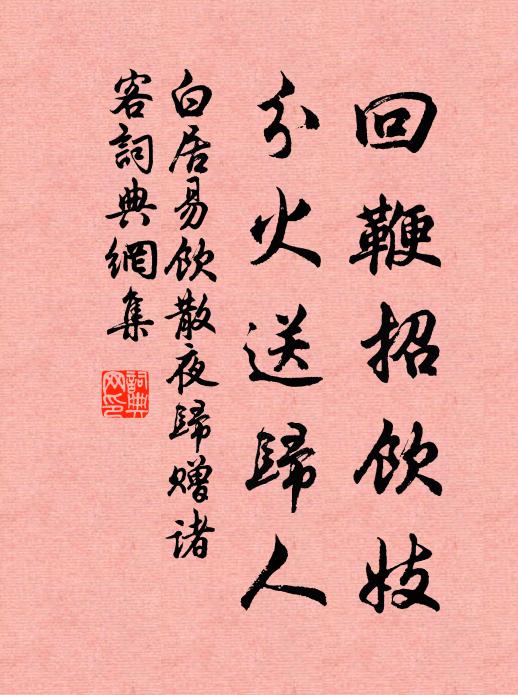 回鞭招飲妓
分火送歸人
白居易飲散夜歸赠诸
客詞典網集
詞典
网印